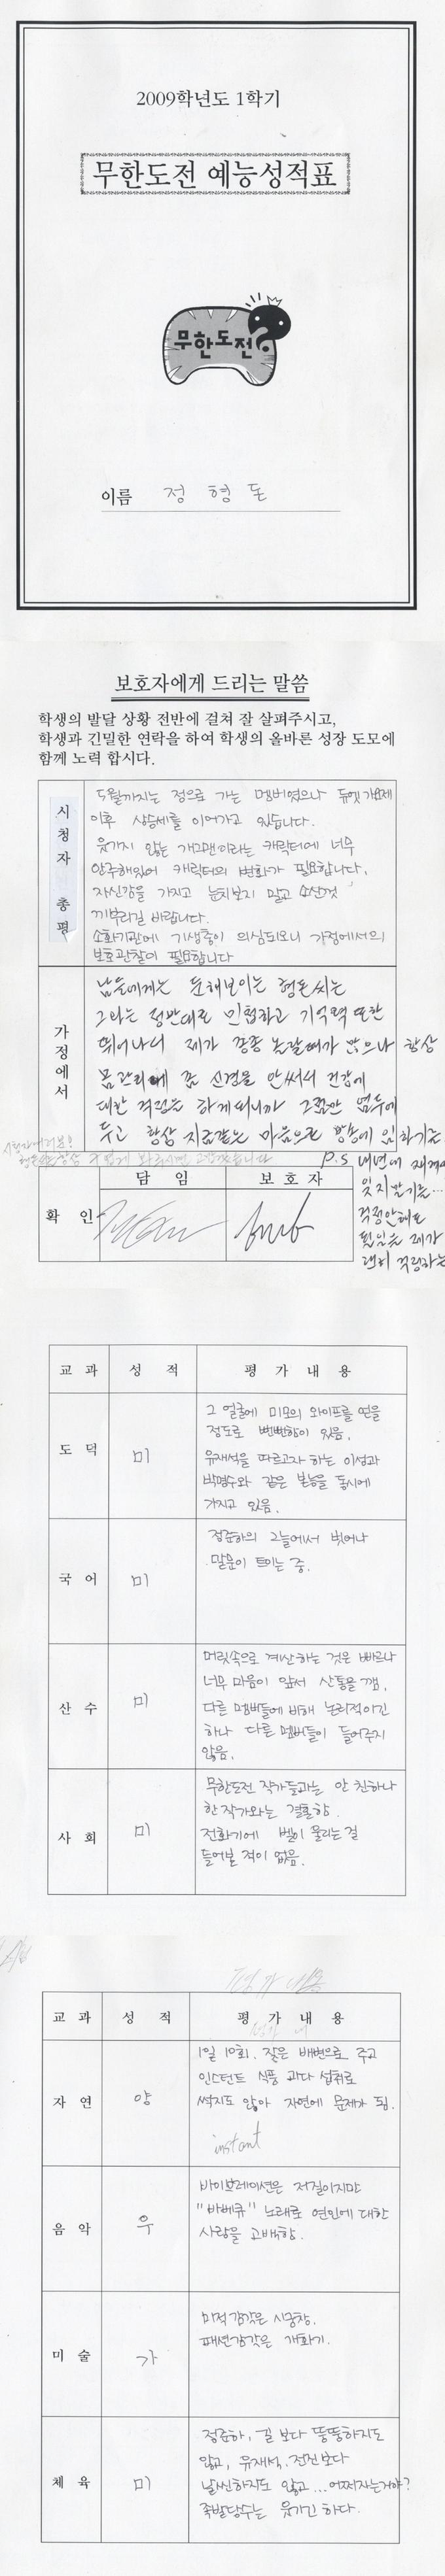 2009학년도 1학기
무한도전 예능성적표
무한도전?
이름 정 형 돈
보호자에게 드리는 말씀
학생의 발달 상황 전반에 걸쳐 잘 살펴주시고,
학생과 긴밀한 연락을 하여 학생의 올바른 성장 도모에
함께 노력 합시다.
시청자 총평
5월까지는 정으로 가는 멤버였으나 듀엣가요제
이후 상승세를 이어가고 있습니다.
웃기지 않는 개그맨이라는 캐릭터에 너무
안주해있어 캐릭터의 변화가 필요합니다.
자신감을 가지고 눈치보지 말고 소신껏
끼부리길 바랍니다.
소화기관에 기생충이 의심되오니 가정에서의
보호관찰이 필요합니다
가정에서
남들에게는 둔해보이는 형돈씨는
그와는 정반대로 민첩하고 기억력 또한
뛰어나서 제가 종종 놀랄때가 많으나 항상
몸관리에 좀 신경을 안써서 건강에
대한 걱정을 하게되니까 그점만 염두에
두고 항상 지금같은 마음으로 방송에 임하기를
시청자여러분!
P.S 내년에 재계약
잊지말기를…
걱정안해도
될일을 제가
괜히 걱정하는
담 임
보 호 자
확 인
교 과 성 적 평 가 내 용
도 덕 미
그 얼굴에 미모의 와이프를 얻을
정도로 뻔뻔함이 있음.
유재석을 따르고자 하는 이성과
박명수와 같은 본능을 동시에
가지고 있음.
국 어 미
정준하의 그늘에서 벗어나
말문이 트이는 중.
산 수 미
머릿속으로 계산하는 것은 빠르나
너무 마음이 앞서 산통을 깸.
다른 멤버들에 비해 논리적이긴
하나 다른 멤버들이 들어주지
않음.
사 회 미
무한도전 작가들과는 안 친하나
한 작가와는 결혼함.
전화기에 벨이 울리는 걸
들어본 적이 없음.
평가 내용
교 과 성 적 평 가 내 용
자 연 양
1일 10회. 잦은 배변으로 주고
인스턴트 식품 과다 섭취로
썩지도 않아 자연에 문제가 됨.
instant
음 악 우
바이브레이션은 저질이지만
"바베큐" 노래로 연인에 대한
사랑을 고백함.
미 술 가
미적 감각은 시궁창.
패션감각은 개화기.
체 육 미
정준하, 길 보다 뚱뚱하지도
않고, 유재석, 전진보다
날씬하지도 않고 …어쩌자는거야?
족발당수는 웃기긴 하다.